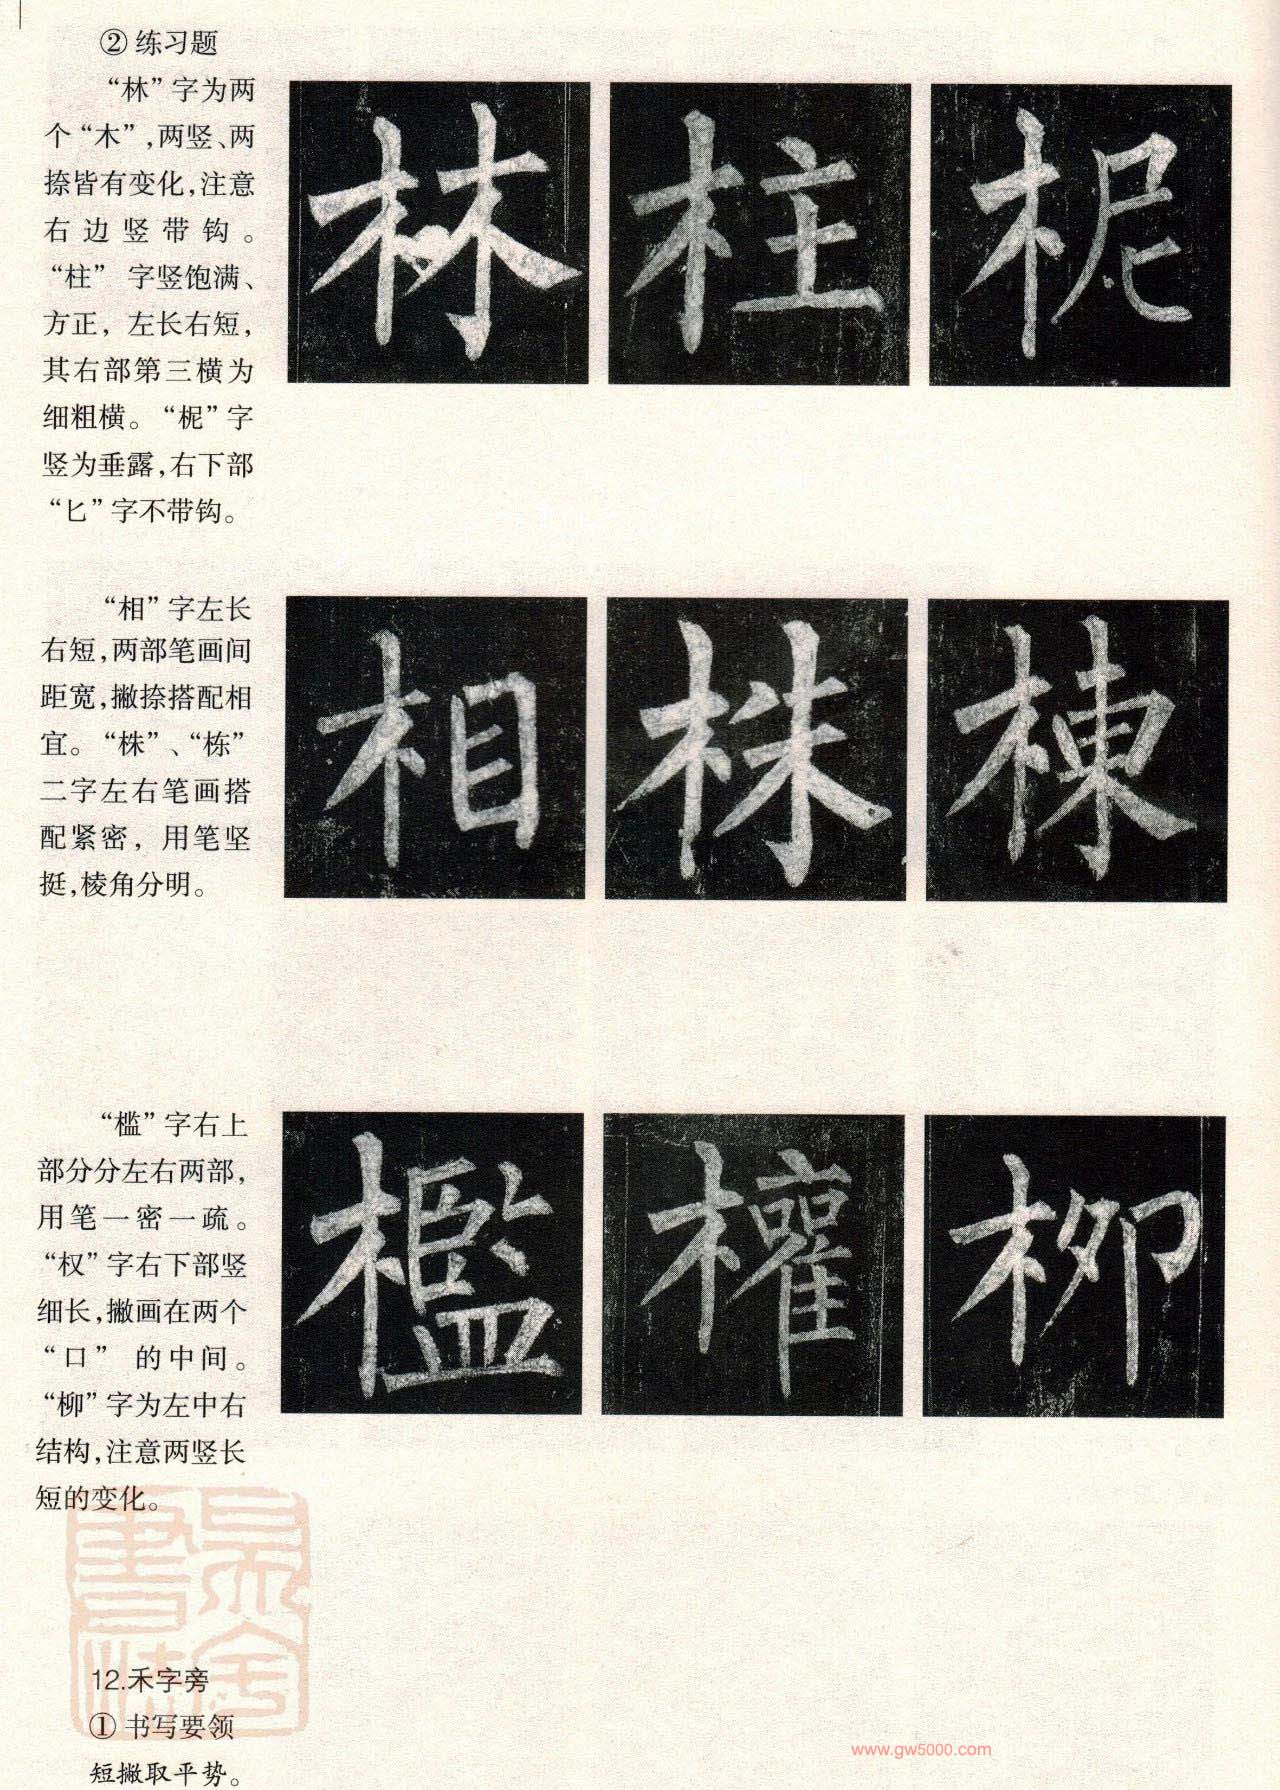 ② 练习题
“林”字为两
个“木”,两竖、两
捺皆有变化,注意
右边竖带钩。
“柱” 字竖饱满、
方正, 左长右短,
其右部第三横为
细粗横。“柅”字
竖为垂露,右下部
“匕”字不带钩。
林 柱 柅
“相”字左长
右短,两部笔画间
距宽,撇捺搭配相
宜。“株”、“栋”
二字左右笔画搭
配紧密, 用笔坚
挺,棱角分明。
相 株 棟
“槛”字右上
部分分左右两部,
用笔一密一疏。
“权”字右下部竖
细长,撇画在两个
“口” 的中间。
“柳”字为左中右
结构,注意两竖长
短的变化。
檻 權 柳
12.禾字旁
① 书写要领
短撇取平势。
www.gw5000.com